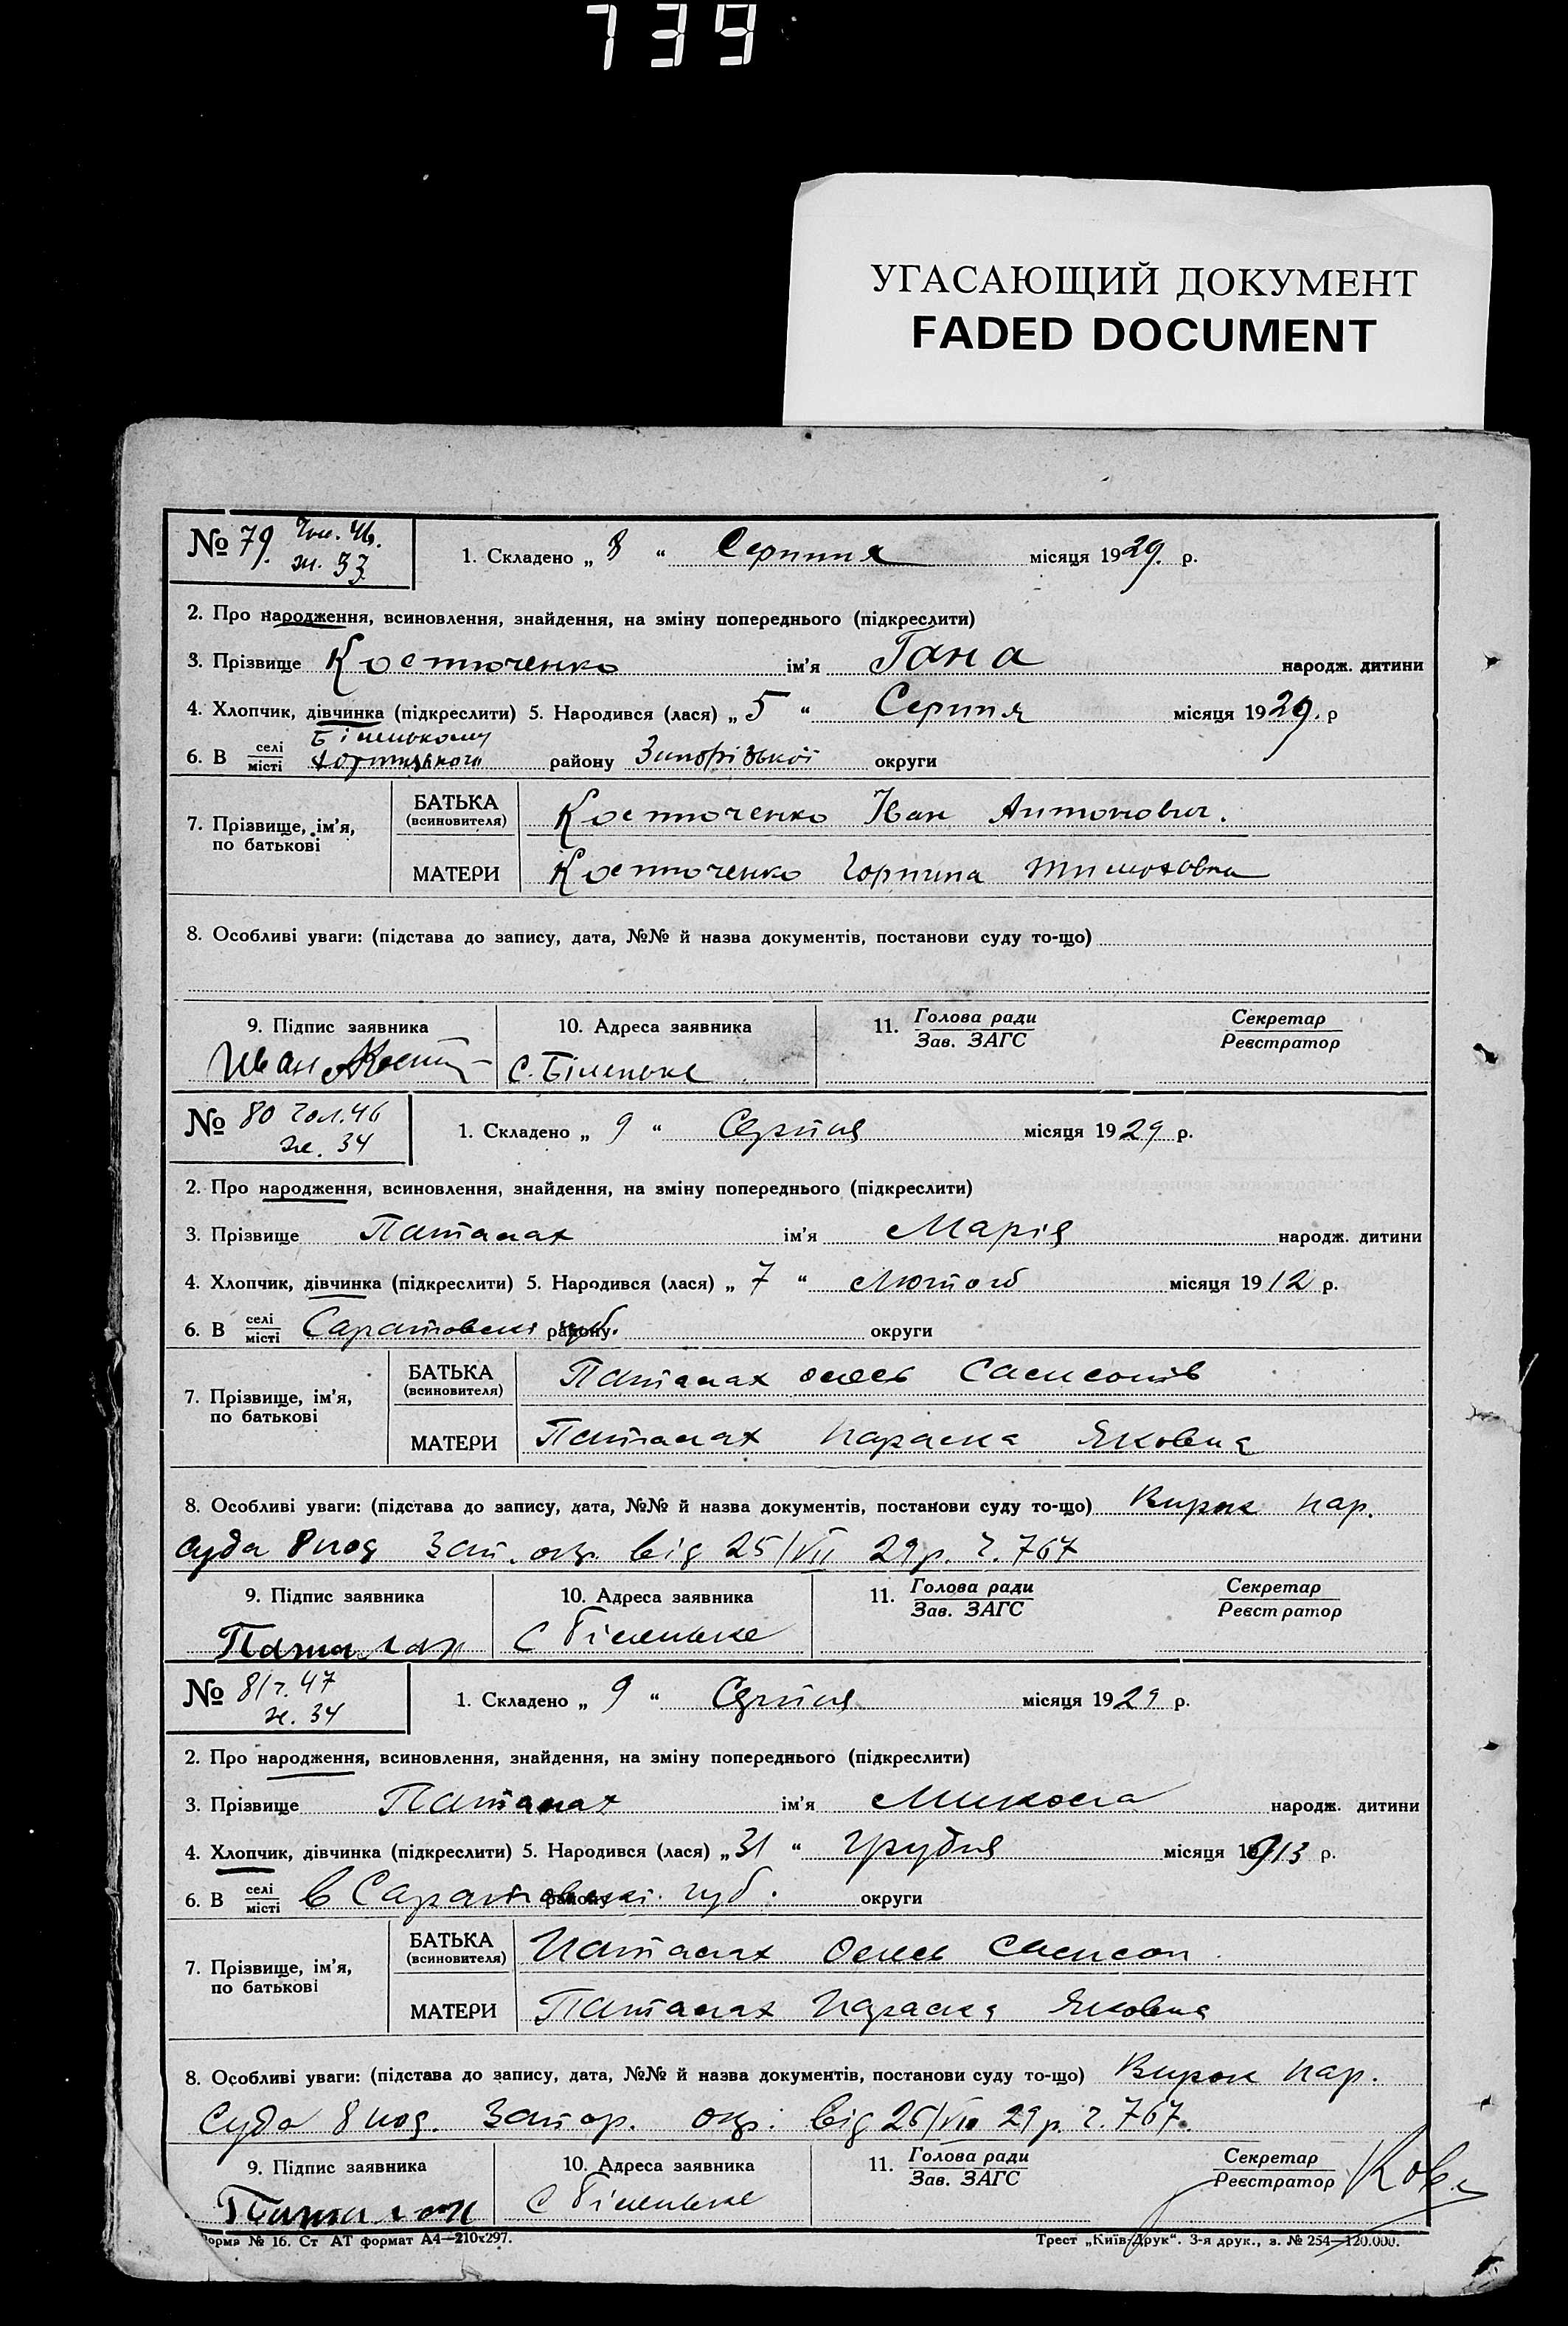 739
УГАСАЮЩИЙ ДОКУМЕНТ
FADED DOCUMENT
№ 79. Чол. 46.
ж. 33
1. Складено „ 8 “ Серпня місяця 1929. р.
2. Про народження, всиновлення, знайдення, на зміну попереднього (підкреслити)
3. Прізвище Костюченко ім'я Гана народж. дитини
4. Хлопчик, дівчинка (підкреслити) 5. Народився (лася) „ 5 “ Серпня місяця 1929. р
Біленькому
6. В селі/місті Хортицького району Запорізької округи
7. Прізвище, ім'я, по батькові
БАТЬКА (всиновителя) Костюченко Іван Антонович.
МАТЕРИ Костюченко Горпина Тимоховна
8. Особливі уваги: (підстава до запису, дата, №№ й назва документів, постанови суду то-що)
9. Підпис заявника 10. Адреса заявника 11. Голова ради/Зав. ЗАГС Секретар/Реєстратор
Иван с. Біленьке
№ 80 чол. 46
ж. 34
1. Складено „ 9 “ Серпня місяця 1929 р.
2. Про народження, всиновлення, знайдення, на зміну попереднього (підкреслити)
3. Прізвище Паталах ім'я Марія народж. дитини
4. Хлопчик, дівчинка (підкреслити) 5. Народився (лася) „ 7 “ Лютого місяця 1912 р.
6. В селі/місті Саратовські губ. району округи
7. Прізвище, ім'я, по батькові
БАТЬКА (всиновителя) Паталах Олесь Самсонів
МАТЕРИ Паталах Параска Яковна
8. Особливі уваги: (підстава до запису, дата, №№ й назва документів, постанови суду то-що) Вирок нар.
суда 8 под Зап. окр. від 25/VII 29 р. ч. 767
9. Підпис заявника 10. Адреса заявника 11. Голова ради/Зав. ЗАГС Секретар/Реєстратор
Паталах с Біленьке
№ 81 ч. 47
ж. 34
1. Складено „ 9 “ Серпня місяця 1929 р.
2. Про народження, всиновлення, знайдення, на зміну попереднього (підкреслити)
3. Прізвище Паталах ім'я Микола народж. дитини
4. Хлопчик, дівчинка (підкреслити) 5. Народився (лася) „ 31 “ Грудня місяця 1913 р.
6. В селі/місті в Саратовські губ. району округи
7. Прізвище, ім'я, по батькові
БАТЬКА (всиновителя) Паталах Олесь Самсон.
МАТЕРИ Паталах Параска Яковна
8. Особливі уваги: (підстава до запису, дата, №№ й назва документів, постанови суду то-що) Вирок нар.
Суда 8 под. Запор. окр. від 25/VII 29 р. ч. 767.
9. Підпис заявника 10. Адреса заявника 11. Голова ради/Зав. ЗАГС Секретар/Реєстратор
Паталах с Біленьке
орма № 16. Ст АТ формат А4—210х297. Трест „Київ-Друк“. 3-я друк., з. № 254—120.000.